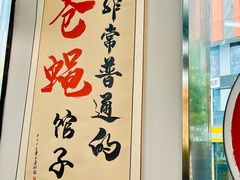 非常普通的
苍蝇馆子